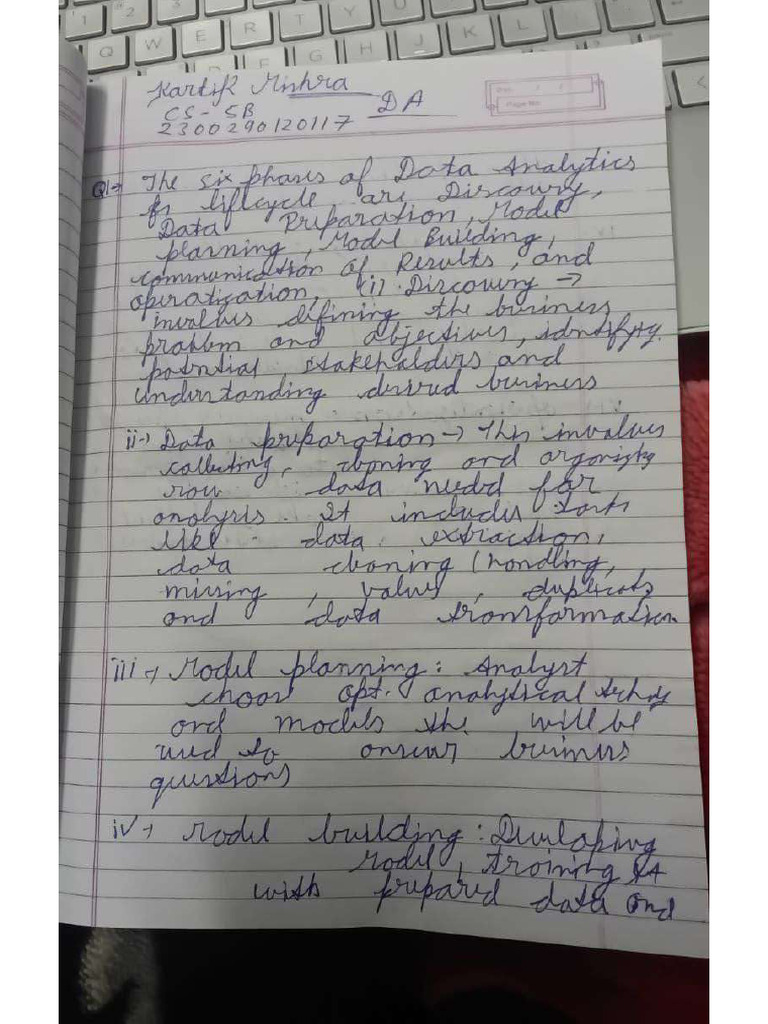 Q W E R T Y U
G H J K L
Kartik Mishra
CS-5B
DA
2300290120117
Page No:
Q1→ The six phases of Data Analytics
lifecycle are Discovery,
Data Preparation, Model
planning, Model Building,
communication of Results, and
operatization, (i) Discovery →
involves defining the business
problem and objectives, identifying
potential stakeholders, and
understanding desired business
ii→ Data preparation → This involves
collecting, cleaning and organizing
raw data needed for
analysis. It includes tasks
like data extraction,
data cleaning (handling,
missing, values, duplicats
and data transformation
iii→ Model planning: Analyst
choose opt. analytical
and models the will be
used to answer business
questions
iv→ Model building: Developing
Model, training it
with prepared data and